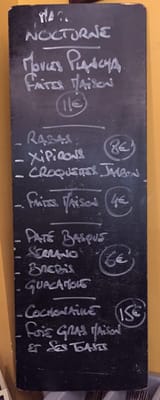 NOCTURNE
MOULES PLANCHA
FAITES MAISON
11€
- RABAS
- XIPIRONS
- CROQUETTES JAMBON
8€
- FRITES MAISON
4€
- PATÉ BASQUE
- SERRANO
- BREBIS
- GUACAMOLE
6€
- COCHONAILLE
- FOIE GRAS MAISON
ET SES TOASTS
15€